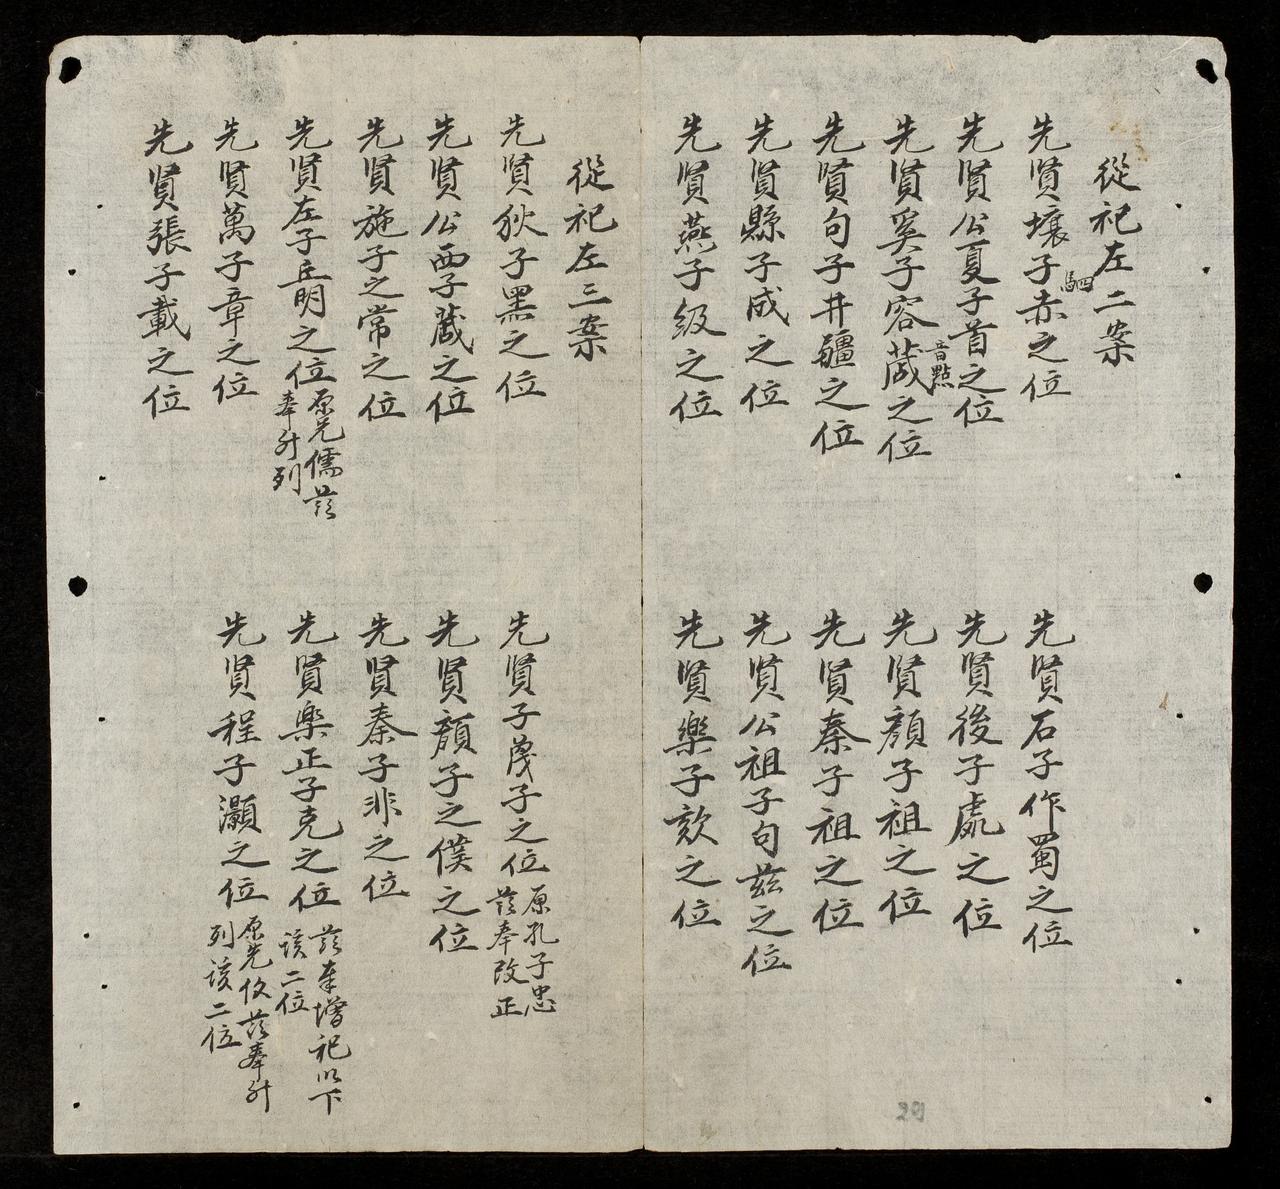 從祀左二案
先賢壤子赤之位
駟
先賢公夏子首之位
先賢奚子容葴之位
音點
先賢句子井疆之位
先賢縣子成之位
先賢燕子級之位
先賢石子作蜀之位
先賢後子處之位
先賢顏子祖之位
先賢秦子祖之位
先賢公祖子句茲之位
先賢樂子欬之位
從祀左三案
先賢狄子黑之位
先賢公西子蕆之位
先賢施子之常之位
先賢左子丘明之位
原先儒茲
奉升列
先賢萬子章之位
先賢張子載之位
先賢子蔑子之位
原孔子忠
茲奉改正
先賢顏子之僕之位
先賢秦子非之位
先賢樂正子克之位
茲奉增祀以下
該二位
先賢程子灝之位
原先位茲奉升
列該二位